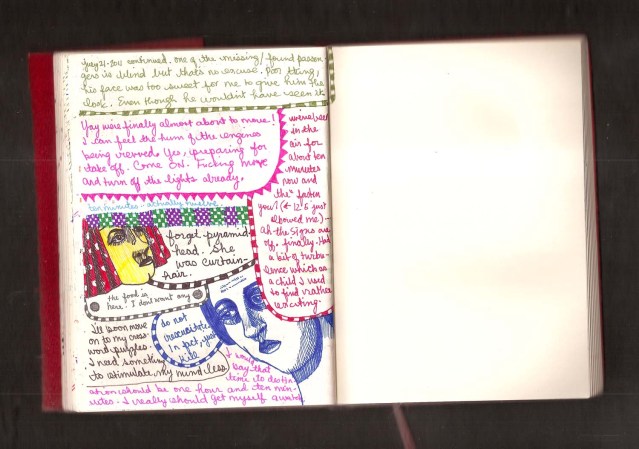 July 31-2011 continued. one of the missing/found passen
gers is blind but that's no excuse. Poor thing,
his face was too sweet for me to give him the
look. Even though he wouldn't have seen it
Yay were finally almost about to move!
I can feel the hum of the engines
being revved. Yes, preparing for
take off. Come on. Fucking move
and turn off the lights already.
we've been
in the
air for
about ten
minutes
now and
the
you! (← 12 B just
elbowed me) -
ah the signs are
off. finally. Had
a bit of turbu-
lence which as
a child I used
to find rather
exciting.
ten minutes - actually twelve.
forget pyramid-
head. She
was curtain-
hair.
the food is
here. I dont want any
I'll soon move
on to my cross-
word puzzles.
I need something
to stimulate my mind less
do not
resuscitate
In fact, just
kill
I would
say that
time to destin-
ation should be one hour and ten min-
utes. I really should get myself